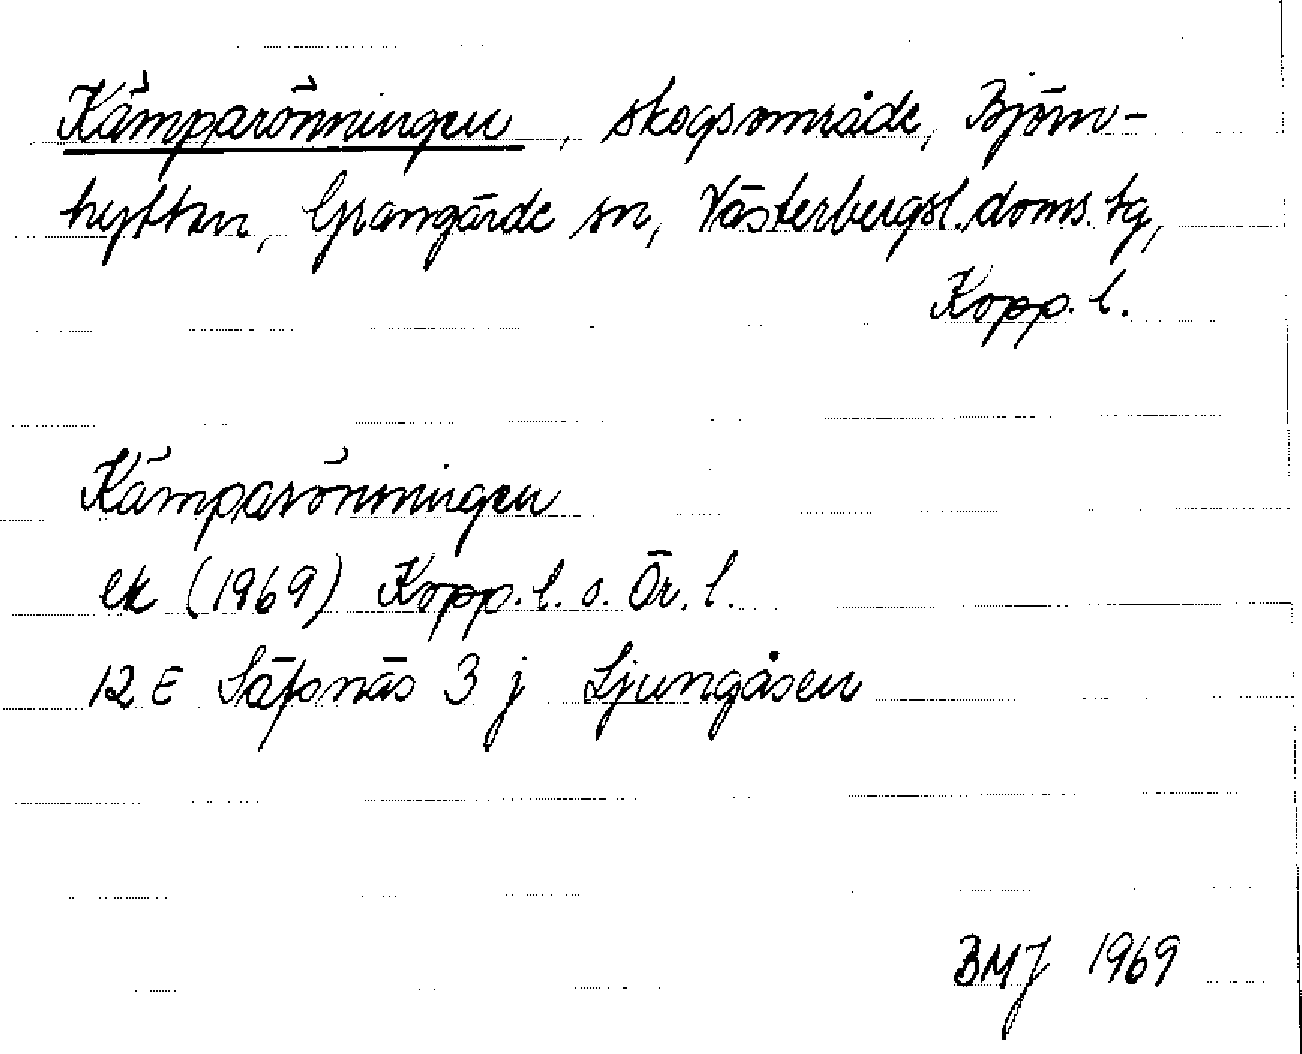 Kämparönningen, skogsområde, Björn-
hyttan, Grangärde sn, Västerbergsl. doms. tg,
Kopp. l.
Kämparönningen
ek (1969) Kopp. l. o. Ör. l.
12 E Säfsnäs 3 j Ljungåsen
BMJ 1969